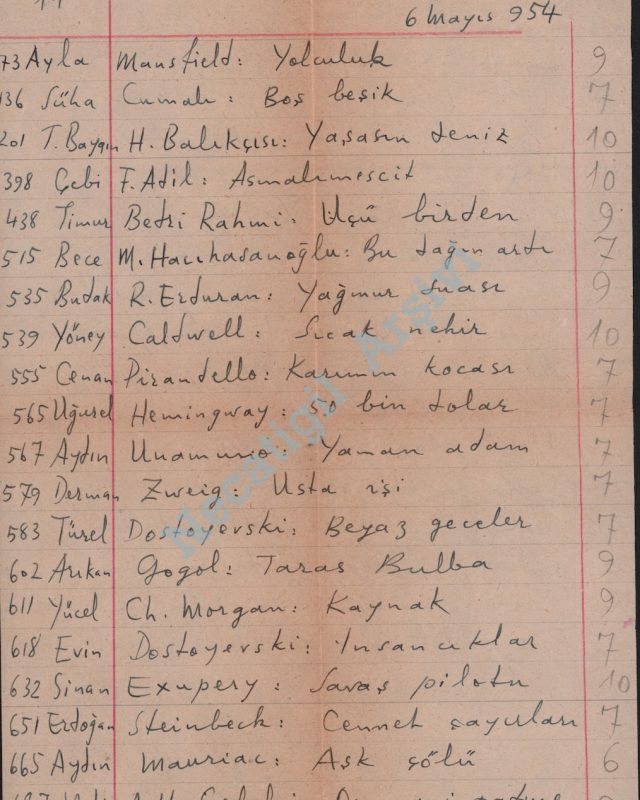 6 Mayıs 954
73 Ayla Mansfield: Yolculuk 9
136 Süha Cumalı: Boş beşik 7
201 T. Baygın H. Balıkçısı: Yaşasın deniz 10
398 Çebi F. Adil: Asmalımescit 10
438 Timur Bedri Rahmi: Üçü birden 9
515 Bece M. Hacıhasanoğlu: Bu dağın ardı 7
535 Budak R. Erduran: Yağmur duası 9
539 Yöney Caldwell: Sıcak nehir 10
555 Cenan Pirandello: Karımın kocası 7
565 Uğurel Hemingway: 50 bin dolar 7
567 Aydın Unamuno: Yaman adam 7
579 Derman Zweig: Usta işi 7
583 Türel Dostoyevski: Beyaz geceler 7
602 Arıkan Gogol: Taras Bulba 9
611 Yücel Ch. Morgan: Kaynak 9
618 Evin Dostoyevski: İnsancıklar 7
632 Sinan Exupery: Savaş pilotu 10
651 Erdoğan Steinbeck: Cennet çayırları 7
665 Aydın Mauriac: Aşk çölü 6
Necatigil Arşivi